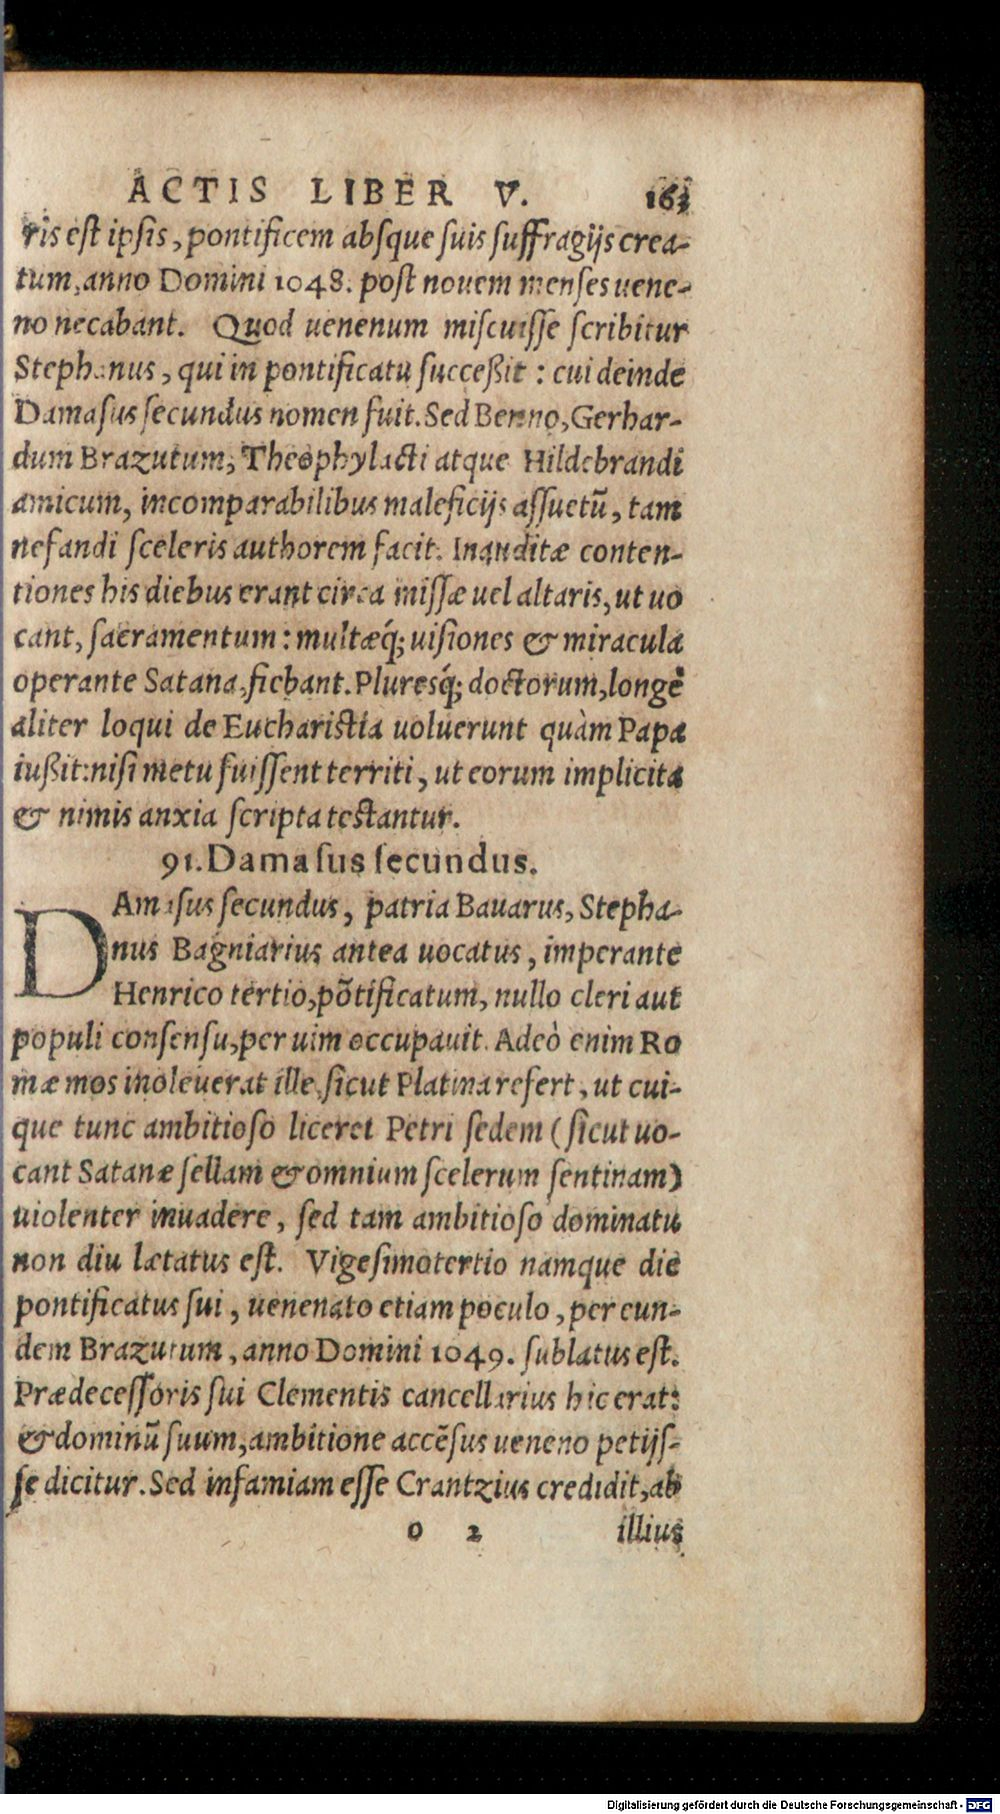 ACTIS LIBER V. 163
ris est ipsis, pontificem absque suis suffragijs crea-
tum, anno Domini 1048. post nouem menses uene-
no necabant. Quod uenenum miscuisse scribitur
Stephanus, qui in pontificatu succeßit : cui deinde
Damasus secundus nomen fuit. Sed Benno, Gerhar-
dum Brazutum, Theophylacti atque Hildebrandi
amicum, incomparabilibus maleficijs assuetũ, tam
nefandi sceleris authorem facit. Inauditæ conten-
tiones his diebus erant circa missæ uel altaris, ut uo
cant, sacramentum : multæq́; uisiones & miracula
operante Satana, fiebant. Pluresq́; doctorum, longè
aliter loqui de Eucharistia uoluerunt quàm Papa
iußit: nisi metu fuissent territi, ut eorum implicita
& nimis anxia scripta testantur.
91. Damasus secundus.
DAmasus secundus, patria Bauarus, Stepha-
nus Bagniarius antea uocatus, imperante
Henrico tertio, põtificatum, nullo cleri aut
populi consensu, per uim occupauit. Adeò enim Ro
mæ mos inoleuerat ille, sicut Platina refert, ut cui-
que tunc ambitioso liceret Petri sedem (sicut uo-
cant Satanæ sellam & omnium scelerum sentinam)
uiolenter inuadere, sed tam ambitioso dominatu
non diu lætatus est. Vigesimotertio namque die
pontificatus sui, uenenato etiam poculo, per eun-
dem Brazutum, anno Domini 1049. sublatus est.
Prædecessoris sui Clementis cancellarius hic erat:
& dominũ suum, ambitione accẽsus ueneno petijs-
se dicitur. Sed infamiam esse Crantzius credidit, ab
o 2 illius
Digitalisierung gefördert durch die Deutsche Forschungsgemeinschaft - DFG